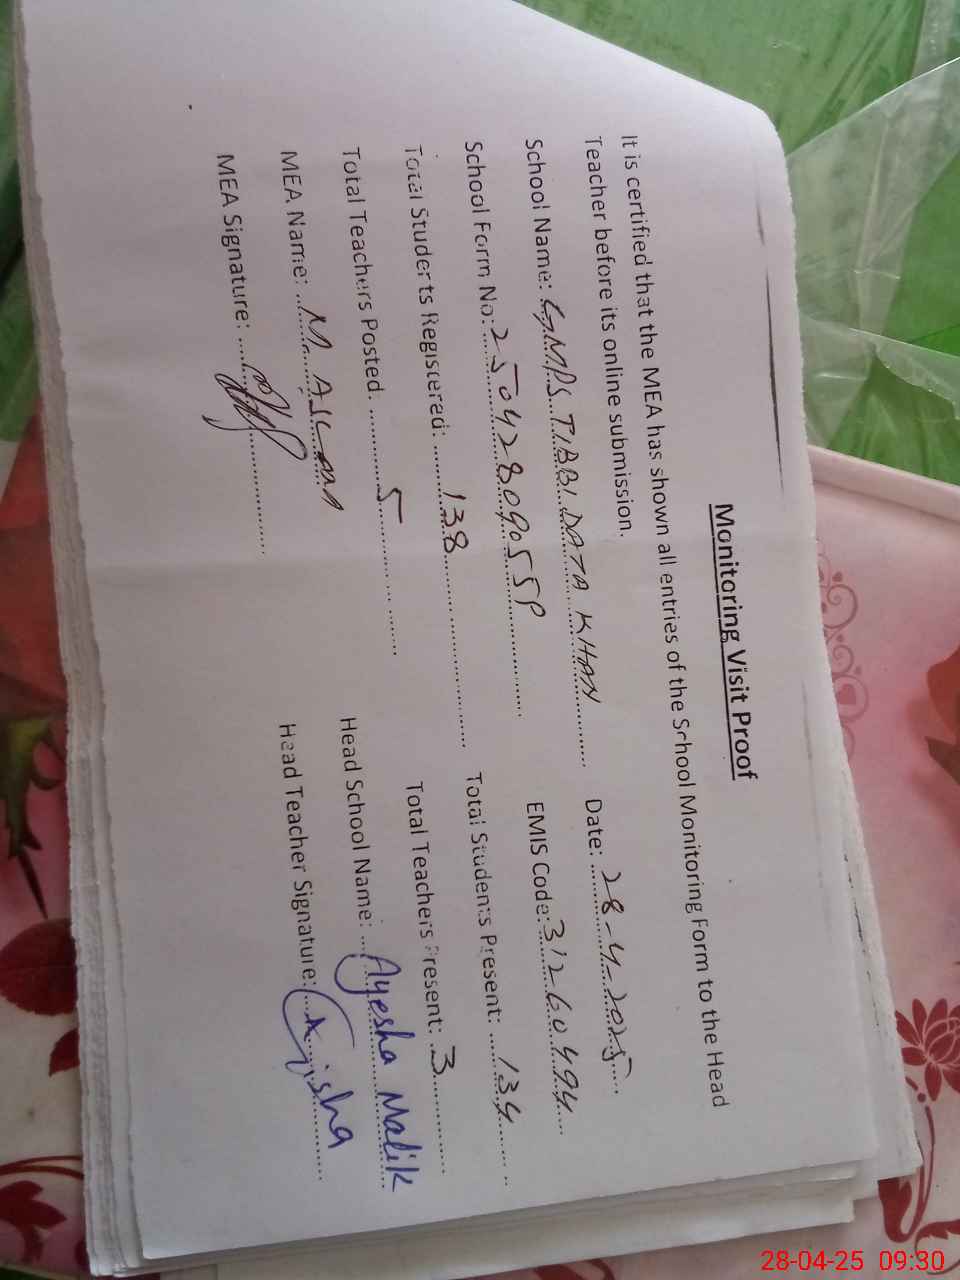 Monitoring Visit Proof
It is certified that the MEA has shown all entries of the School Monitoring Form to the Head
Teacher before its online submission.
School Name: GMPS TIBBI DATA KHAN Date: 28-4-2025
School Form No: 2504280905SP EMIS Code: 31260494
Total Students Registered: 138 Total Students Present: 134
Total Teachers Posted. 5 Total Teachers Present: 3
MEA Name: M. Head School Name: Ayesha Malik
MEA Signature: Head Teacher Signature:
28-04-25 09:30